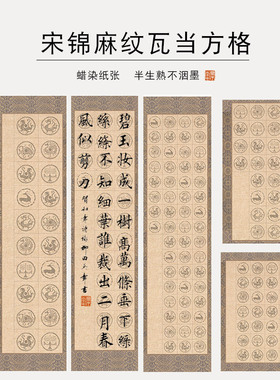 宋锦麻纹瓦当方格
蜡染纸张 半生熟不洇墨
碧玉妝成一樹高萬條垂下綠
絲縧不知細葉誰裁出二月春
風似剪刀
賀知章詩詠柳